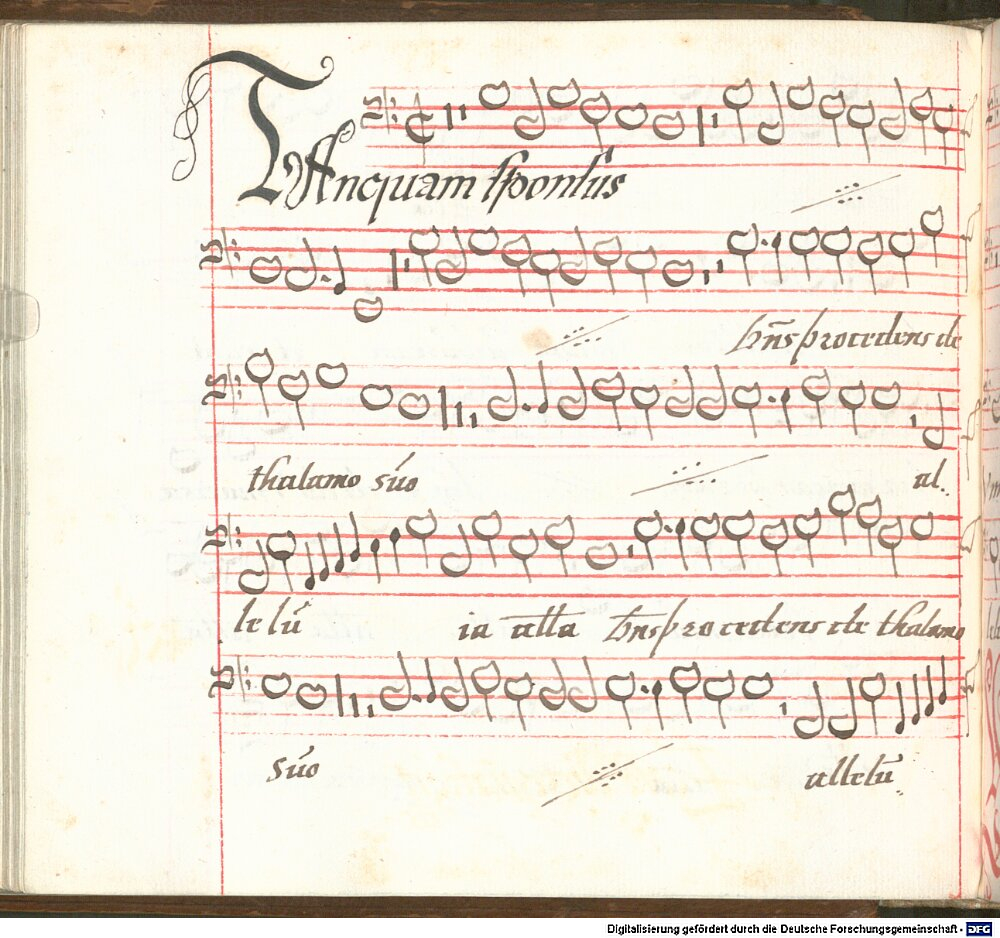 TAnquam sponsus
dn̄s procedens de
thalamo suo al
le lu
ia alla dn̄s procedens de thalamo
suo allelu
Digitalisierung gefördert durch die Deutsche Forschungsgemeinschaft - DFG